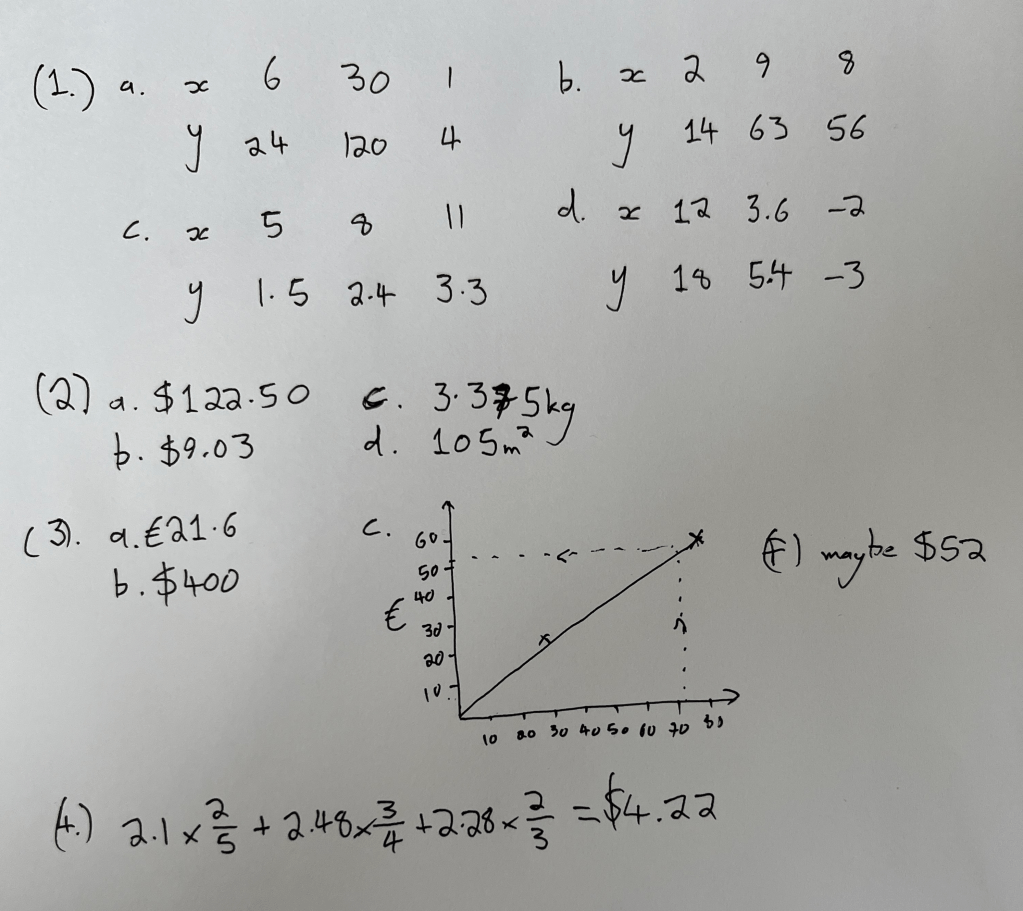 (1.) a. x 6 30 1 b. x 2 9 8
y 24 120 4 y 14 63 56
c. x 5 8 11 d. x 12 3.6 -2
y 1.5 2.4 3.3 y 18 5.4 -3
(2) a. $122.50 c. 3.375kg
b. $9.03 d. 105m²
(3). a. €21.6 c.
b. $400
(f) maybe $52
60
50
40
€
30
20
10
10 20 30 40 50 60 70 80
(4.) 2.1 × 2/5 + 2.48 × 3/4 + 2.28 × 2/3 = $4.22